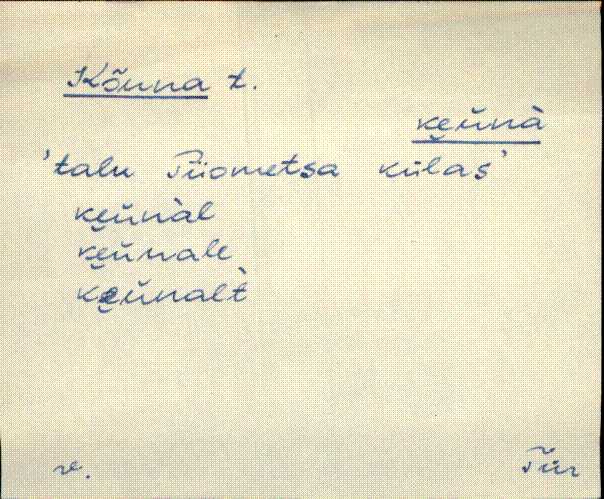 Kõnna t.
ke̮ŭnà
'talu Tüometsa külas'
ke̮ŭnàl
ke̮ŭnale
ke̮ŭnalt̀
v. Tür